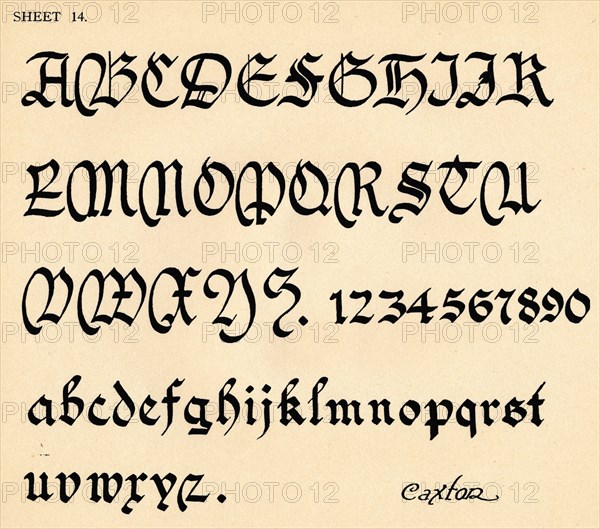 SHEET 14.
ABCDEFGHIJK
LMNOPQRSTU
VWXYZ. 1234567890
abcdefghijklmnopqrst
uvwxyz. Caxton
PHOTO 12